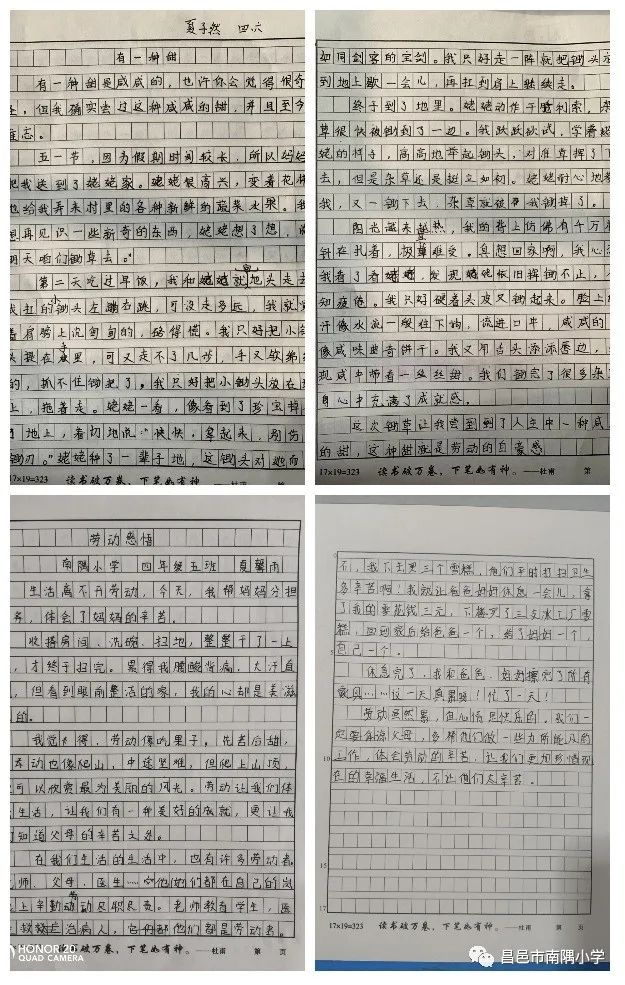 夏子然 四六
有一种甜
有一种甜是咸咸的，也许你会觉得很奇
，但我确实去过这种咸咸的甜，并且至今
忘。
五一节，因为假期时间较长，所以妈妈
把我送到了姥姥家。姥姥很高兴，变着花样
地给我弄来村里的各种新鲜的蔬菜水果。我
想再见识一些新奇的东西，姥姥想了想，
明天咱们锄草去。”
第二天吃过早饭，我和姥姥就地头走去
我扛的小锄头左蹦右跳，可没走多远，我就
着肩膀上沉甸甸的，硌得慌。我只好把小锄
头提在手里，可又走不了几步，手又软绵绵
的，抓不住锄把了，我只好把小锄头放在地
上，拖着走。姥姥一看，像看到了珍宝掉
地上，着切地说：“快快，拿起来，别伤
锄刃。”姥姥种了一辈子地，这锄头对她而
17×19=323 读书破万卷，下笔如有神。——杜甫 第
如同剑客的宝剑。我只好走一阵就把锄头放
到地上歇一会儿，再扛到肩上继续走。
终于到了地里。姥姥动作于脆利索，杂
草很快被锄到了一边。我跃跃欲试，学着姥
姥的样子，高高地举起锄头，对准草挥了下
去，但是杂草还是挺立如初。姥姥耐心地教
我，又一锄下去，杂草
阳光越来越热，我的背上仿佛有千万根
针在扎着，极其难受。真想回家啊，我心
我看了看姥姥，发现姥姥依旧挥锄不止，不
知疲倦。我只好硬着头皮又锄起来。脸上的
汗像水流一般往下的，流进口中，咸咸的
像咸味曲奇饼干。我又用舌头添添唇边，
现咸中带有一丝丝甜。我们锄完了很多杂草
自心中充满了成就感。
这次锄草让我尝到到了人生中一种咸咸
的甜，这种甜味是劳动的自豪感
17×19=323 读书破万卷，下笔如有神。——杜甫 第
劳动感悟
南隅小学 四年级五班 夏馨雨
生活离不开劳动，今天，我帮妈妈分担
务，体会了妈妈的辛苦。
收拾房间、洗碗、扫地，整整干了一上
，才终于扫完。累得我腰酸背痛，大汗直
，但看到眼前整洁的家，我的心却是美滋
的。
我觉得，劳动像吃果子，先苦后甜，
劳动也像爬山，中途坚难，但爬上山顶，
可以欣赏最为美丽的风光。劳动让我们体
生活，让我们有一种美好的成就，更让我
们知道父母的辛苦之处。
在我们生活的生活中，也有许多劳动者
老师、父母、医生……他们都在自己的岗
位上辛勤劳动尽职尽责。老师教育学生，医
治病人，他们都是劳动者。
读书破万卷，下笔如有神。——杜甫 第 页
HONOR 20
QUAD CAMERA
不，我下去里三个雪糕，他们平时打扫卫生
多辛苦啊！我就让爸爸妈妈休息一会儿，拿
了我的零花钱三元，下楼买了三支冰工厂雪
糕，回到家后给爸爸一个，给了妈妈一个，
自己一个。
休息完了，我和爸爸、妈妈擦完了所有
家具……这一天真累呀！忙了一天！
劳动虽然累，但心情是快乐的，我们一
定要体谅父母，多帮他们做一些力所能及的
工作，体会劳动的辛苦，让我们更加珍惜现
在的幸福生活，不让他们太辛苦。
5
10
15
17
17×19=323 读书破万卷，下笔如有神。——杜甫 第 页
昌邑市南隅小学